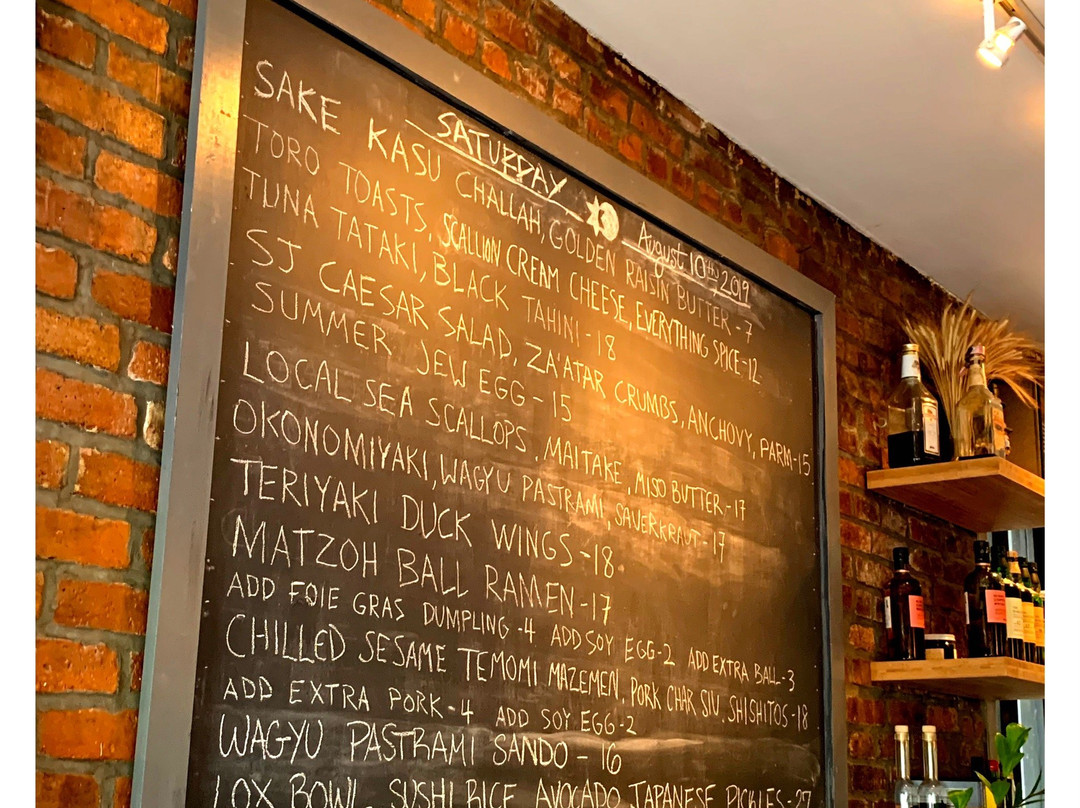 SATURDAY August 10th, 2019
SAKE KASU CHALLAH, GOLDEN RAISIN BUTTER - 7
TORO TOASTS, SCALLION CREAM CHEESE, EVERYTHING SPICE - 12
TUNA TATAKI, BLACK TAHINI - 18
SJ CAESAR SALAD, ZA'ATAR CRUMBS, ANCHOVY, PARM - 15
SUMMER JEW EGG - 15
LOCAL SEA SCALLOPS, MAITAKE, MISO BUTTER - 17
OKONOMIYAKI, WAGYU PASTRAMI, SAUERKRAUT - 17
TERIYAKI DUCK WINGS - 18
MATZOH BALL RAMEN - 17
ADD FOIE GRAS DUMPLING - 4 ADD SOY EGG - 2 ADD EXTRA BALL - 3
CHILLED SESAME TEMOMI MAZEMEN, PORK CHAR SIU, SHISHITOS - 18
ADD EXTRA PORK - 4 ADD SOY EGG - 2
WAGYU PASTRAMI SANDO - 16
LOX BOWL, SUSHI RICE, AVOCADO, JAPANESE PICKLES - 27